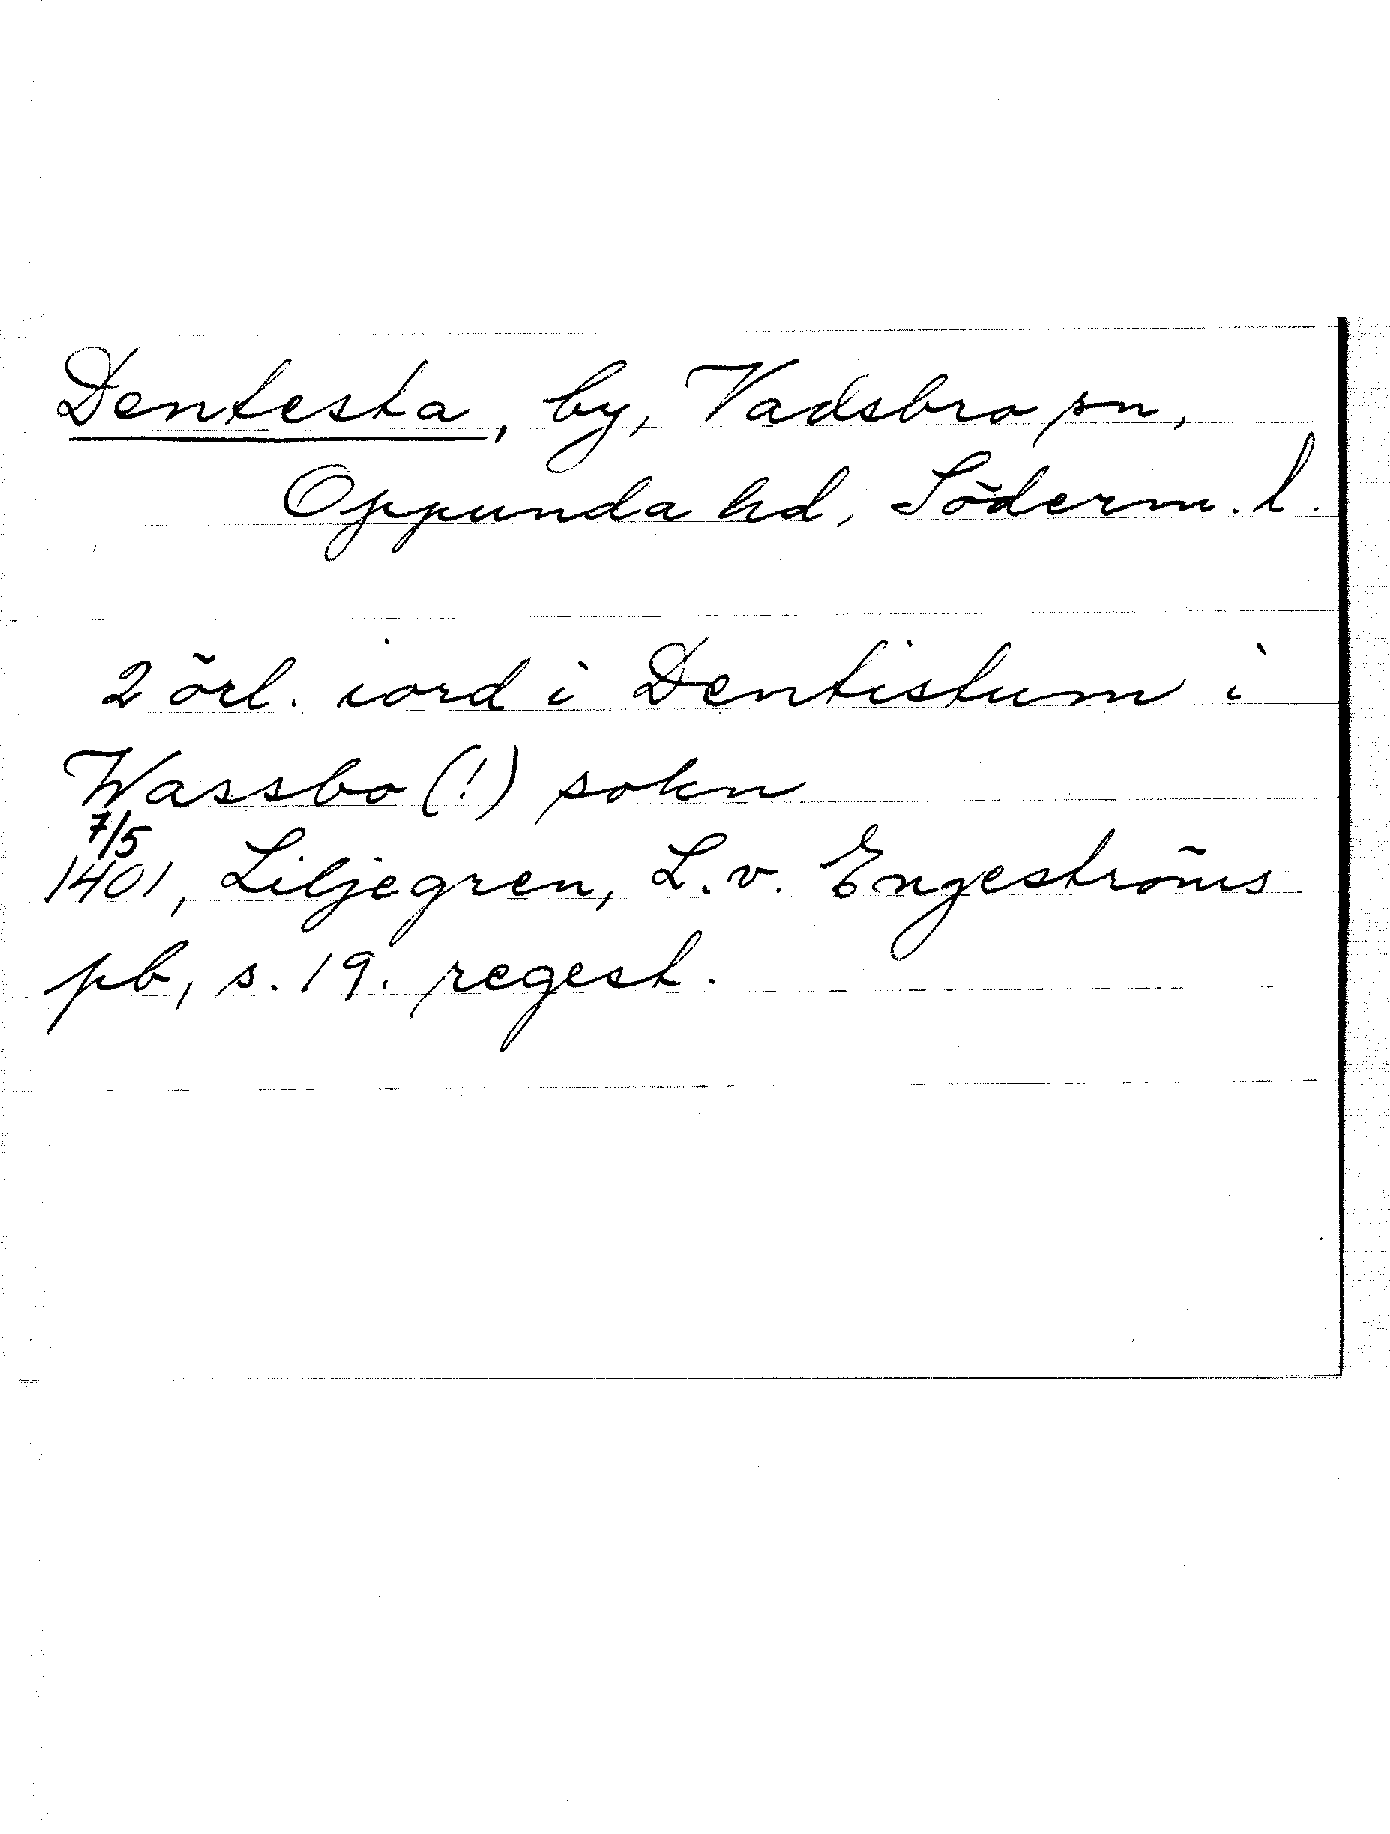 Dentesta, by, Vadsbro sn,
Oppunda hd, Söderm. l.
2 örl. iord i Dentistum i
Wassbo (!) sokn
7/5
1401, Liljegren, L. v. Engeströms
pb, s. 19. regest.